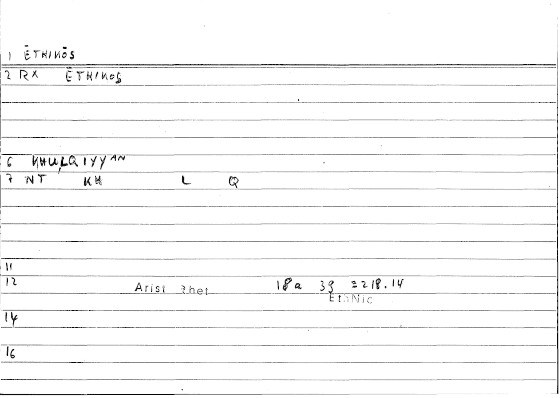 1 ĒTHIKŌS
2 RX ĒTHIKOS
6 KHULQIYYAN
7 NT KH L Q
11
12 Arist Rhet 18a 39 =218.14
EtNic
14
16